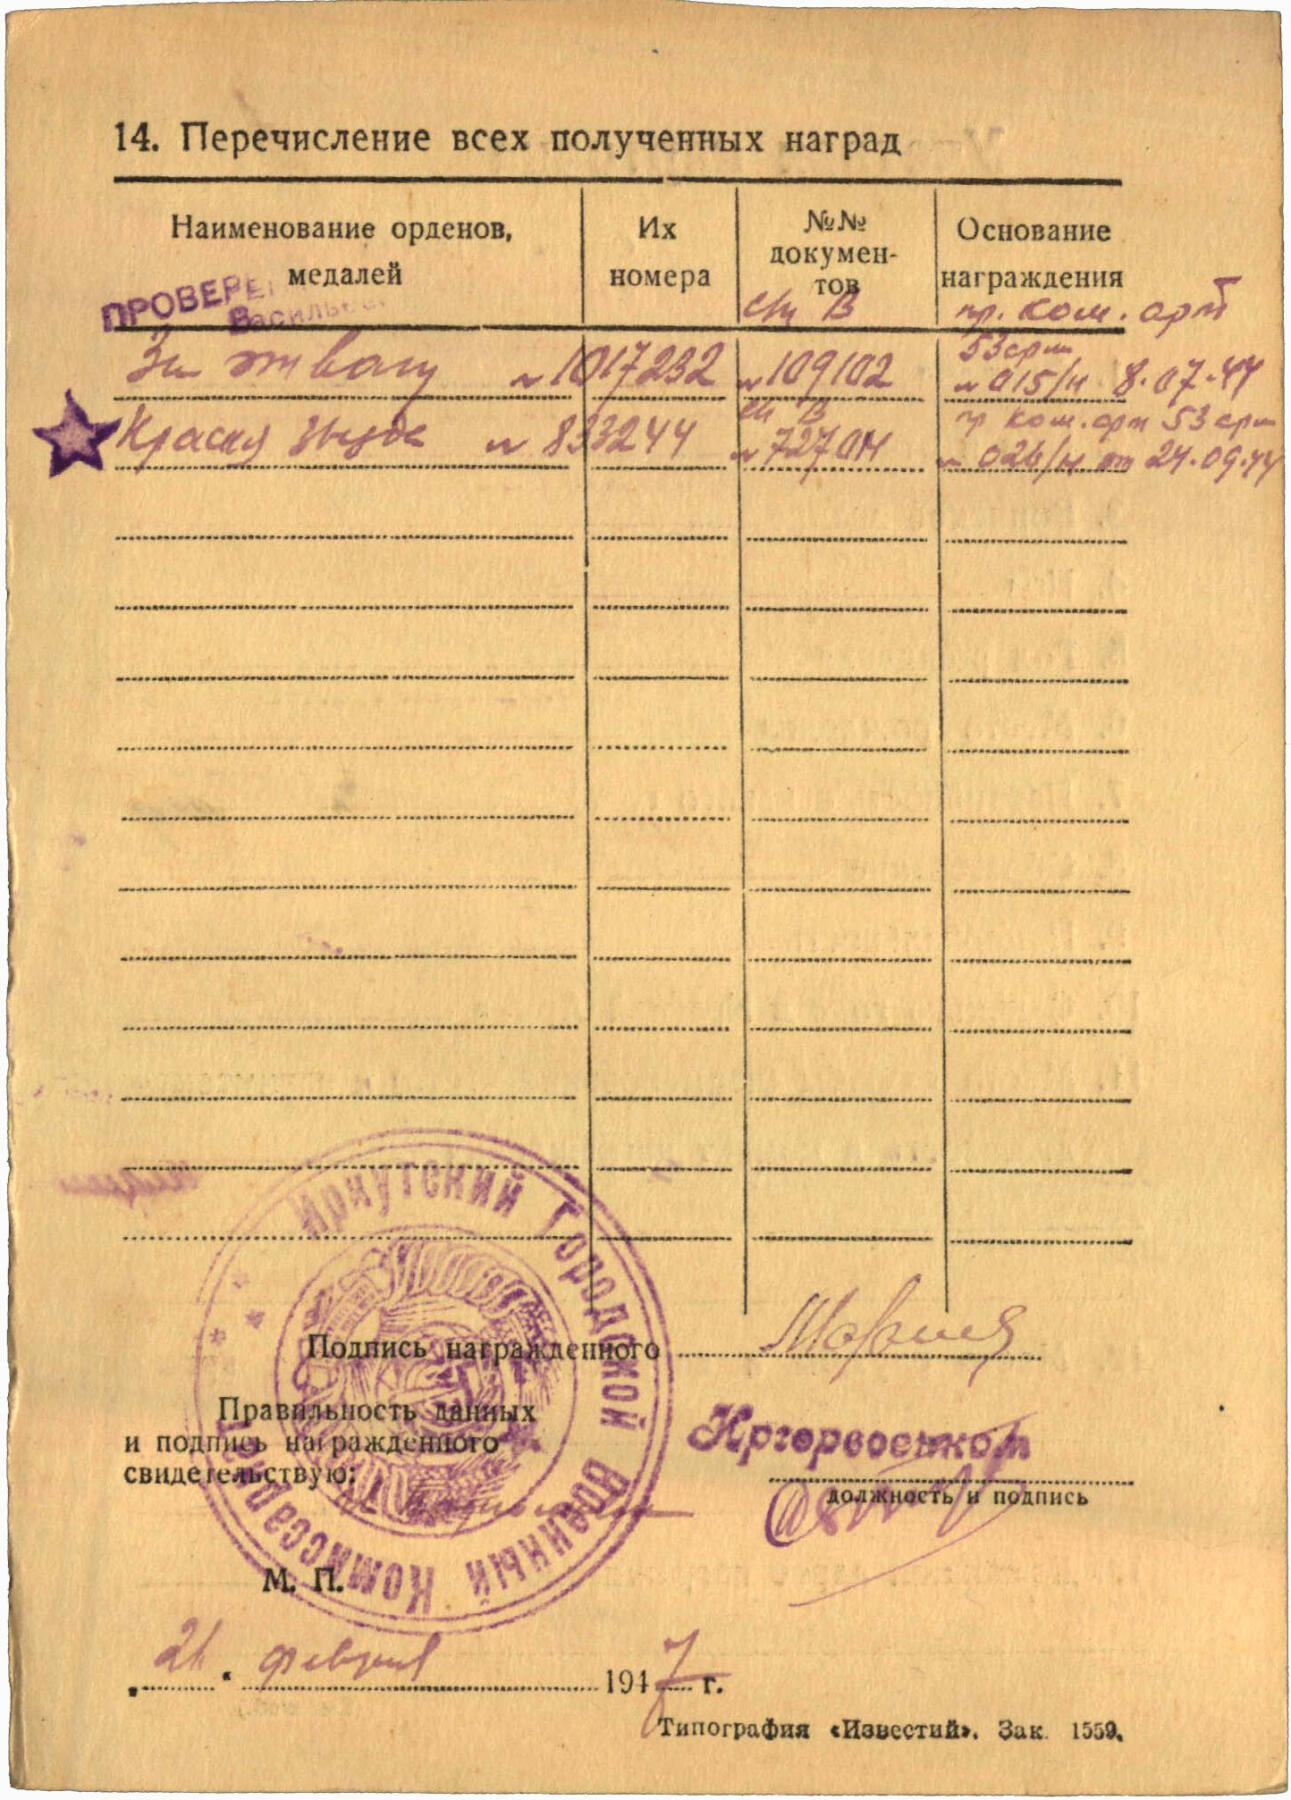 14. Перечисление всех полученных наград
Наименование орденов, медалей
Их номера
№№ документов
Основание награждения
ПРОВЕРЕ
Васильев
сл. В
пр. ком. арт
53 арм
За отвагу № 1017232 № 109102 № 015/н 8.07.44
сл. В
пр ком. арт 53 арм
Красная звезда № 833244 № 727011 № 026/н от 24.09.44
Иркутский Городской Военный Комиссариат
Подпись награжденного
Правильность данных
и подпись награжденного
свидетельствую:
Иргорвоенком
должность и подпись
М. П.
21 февраля 1947 г.
Типография «Известий». Зак. 1559.